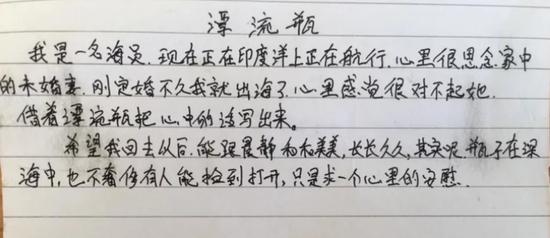 漂流瓶
我是一名海员,现在正在印度洋上正在航行,心里很思念家中
的未婚妻,刚定婚不久我就出海了,心里感觉很对不起她,
借着漂流瓶把心中的话写出来。
希望我回去以后,能跟晨静和和美美,长长久久,其实呢,瓶子在深
海中,也不奢侈有人能捡到打开,只是求一个心里的安慰.